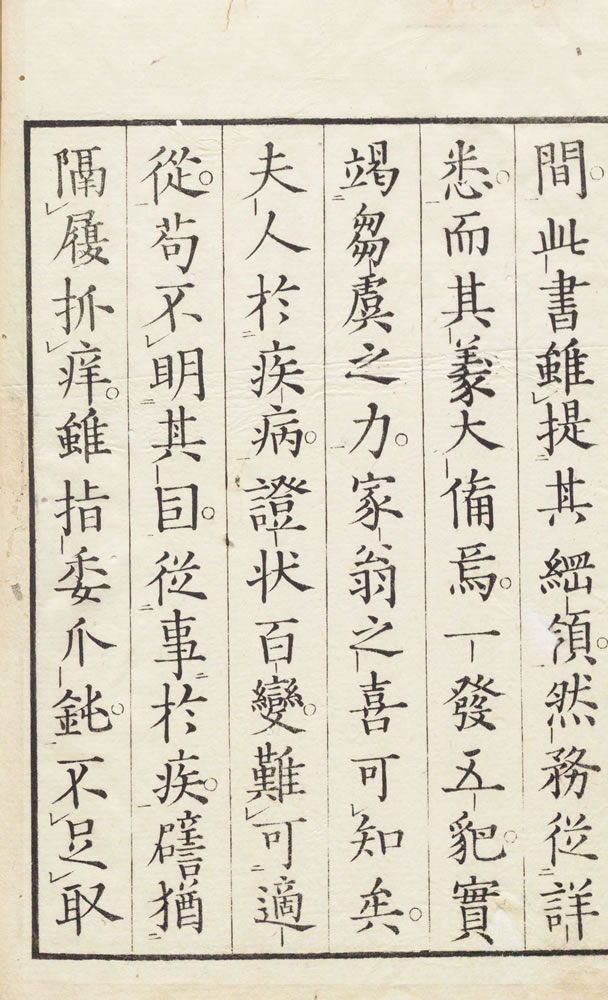 間。此書雖提其綱領。然務従詳
悉。而其義大備焉。一發五豝。實
竭芻虞之力。家翁之喜可知矣。
夫人於疾病。證状百變。難可適
從。苟不眀其囙。従事於疾。譬猶
隔履抓痒。雖指委爪鈍。不足取